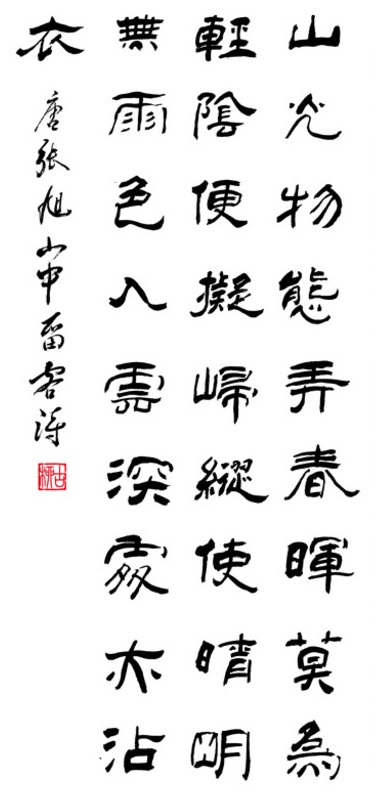 山光物態弄春暉莫為
輕陰便擬歸縱使晴明
無雨色入雲深處亦沾
衣
唐張旭山中留客詩